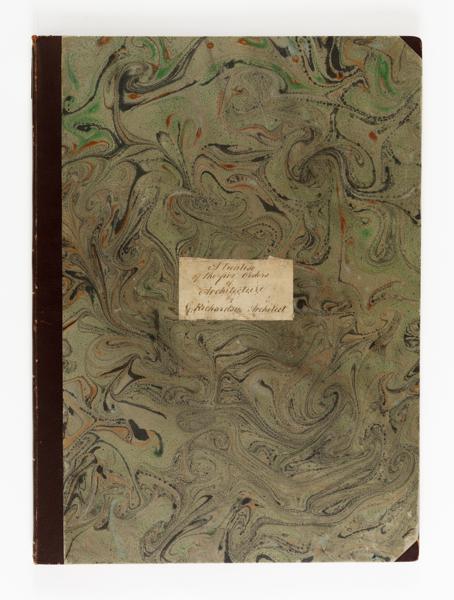 A Treatise
of the five Orders
of
Architecture
by
G Richardson Architect